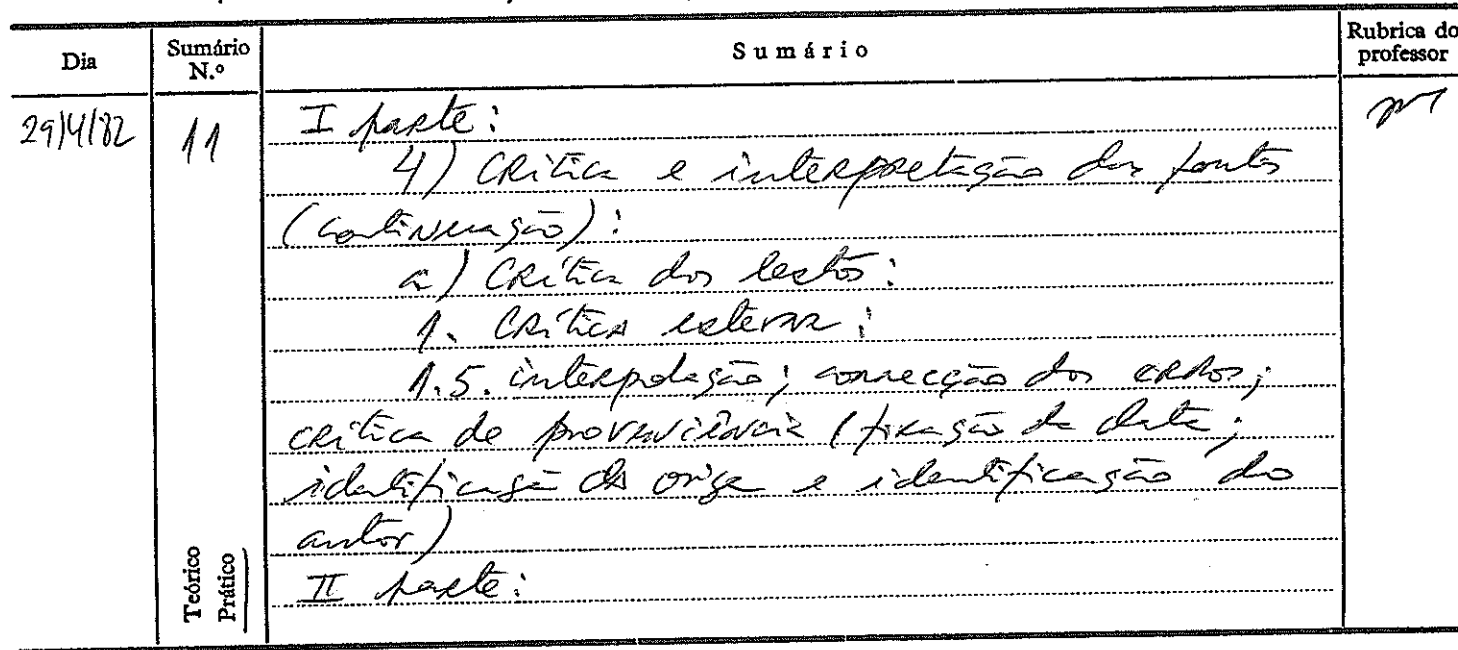 Dia Sumário N.º Sumário Rubrica do professor
29/4/82 11 I parte:
4) Crítica e interpretação das fontes
(continuação):
a) Crítica dos textos:
1. Crítica externa:
1.5. interpolação; correcção dos erros;
crítica de proveniência (fixação da data;
identificação da origem e identificação do
autor)
II parte:
Teórico
Prático